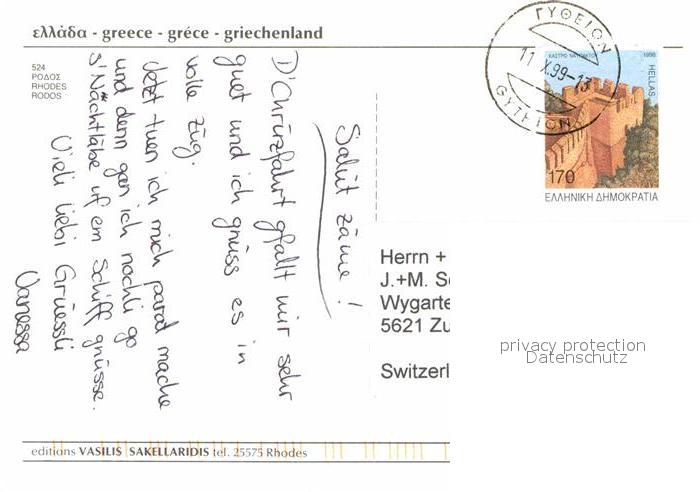 ελλάδα - greece - gréce - griechenland
524
ΡΟΔΟΣ
RHODES
RODOS
Salüt zäme!
D'Chrüzfahrt gfallt mir sehr
guet und ich gnüss es in
volle Züg.
Jetzt tuen ich mich parat mache
und denn gan ich nochli go
s'Nachtläbe uf em Schiff gnüsse.
Vieli liebi Grüessli
Vanessa
ΓΥΘΕΙΟΝ
11.X.99-13
GYTHEION
ΚΑΣΤΡΟ ΝΑΥΠΑΚΤΟΥ 1998
HELLAS
170
ΕΛΛΗΝΙΚΗ ΔΗΜΟΚΡΑΤΙΑ
Herrn +
J.+M. S
Wygarte
5621 Zu
Switzerl
privacy protection
Datenschutz
editions VASILIS SAKELLARIDIS tel. 25575 Rhodes